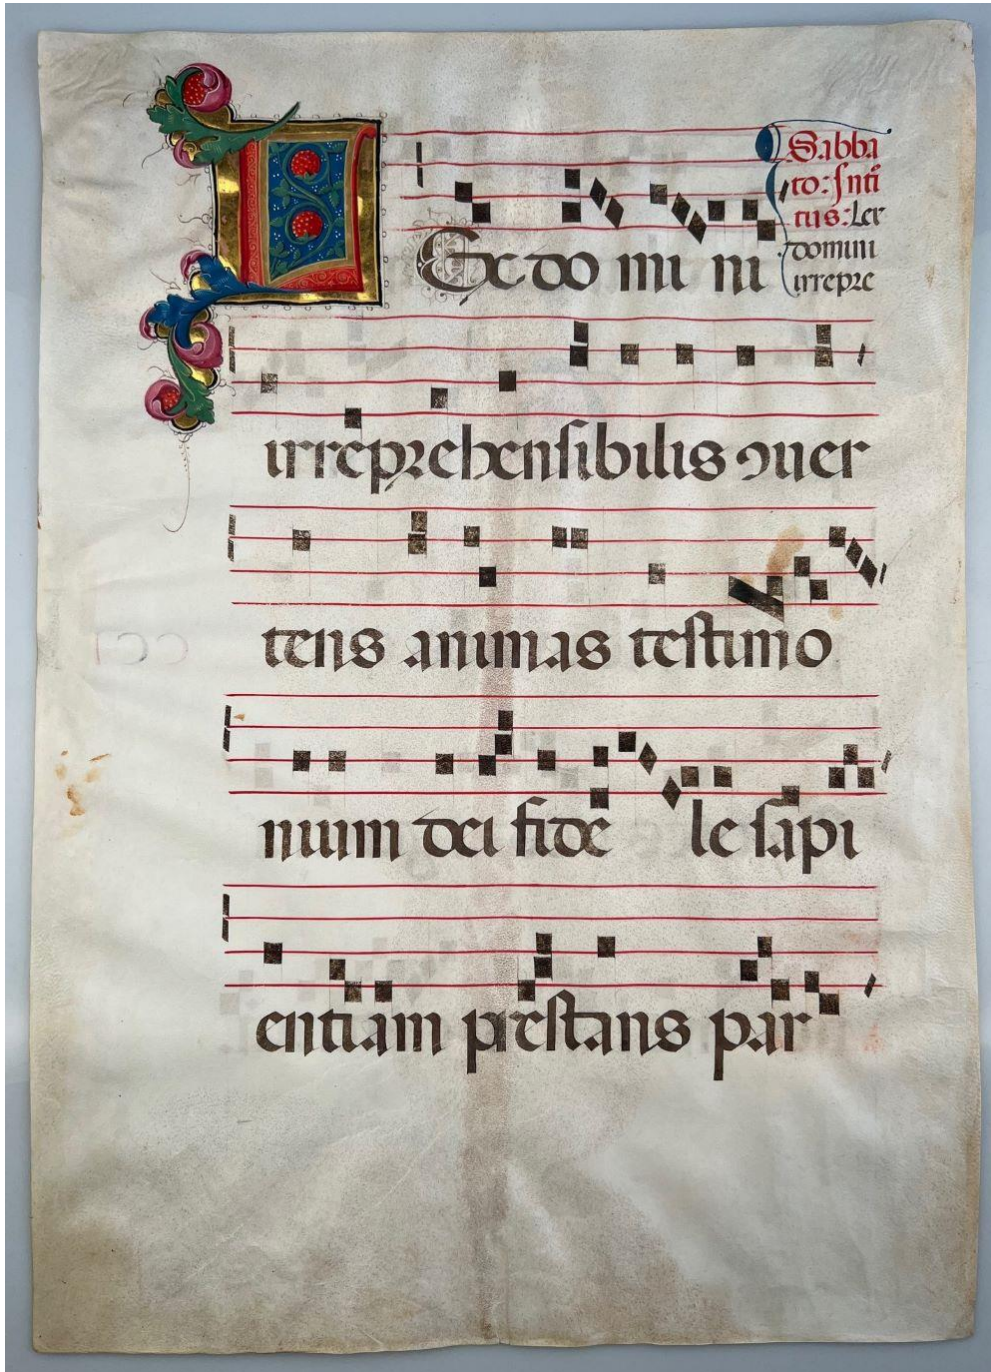 Sabba
to: Inti
tus: Lex
domini
irrepre
LEx do mi ni
irreprehensibilis ꝯuer
tens animas testimo
nium dei fide le sapi
entiam prestans par